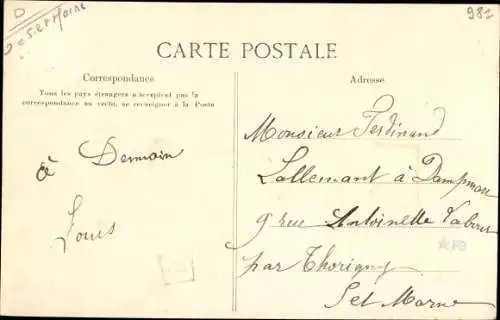 D
Seine et Marne
981
CARTE POSTALE
Correspondance
Tous les pays étrangers n'acceptent pas la
correspondance au verso, se renseigner à la Poste
Adresse
à Demain
Louis
Monsieur Ferdinand
Lallemant à Dampmart
9 rue Antoinette
par Thorigny
Set Marne